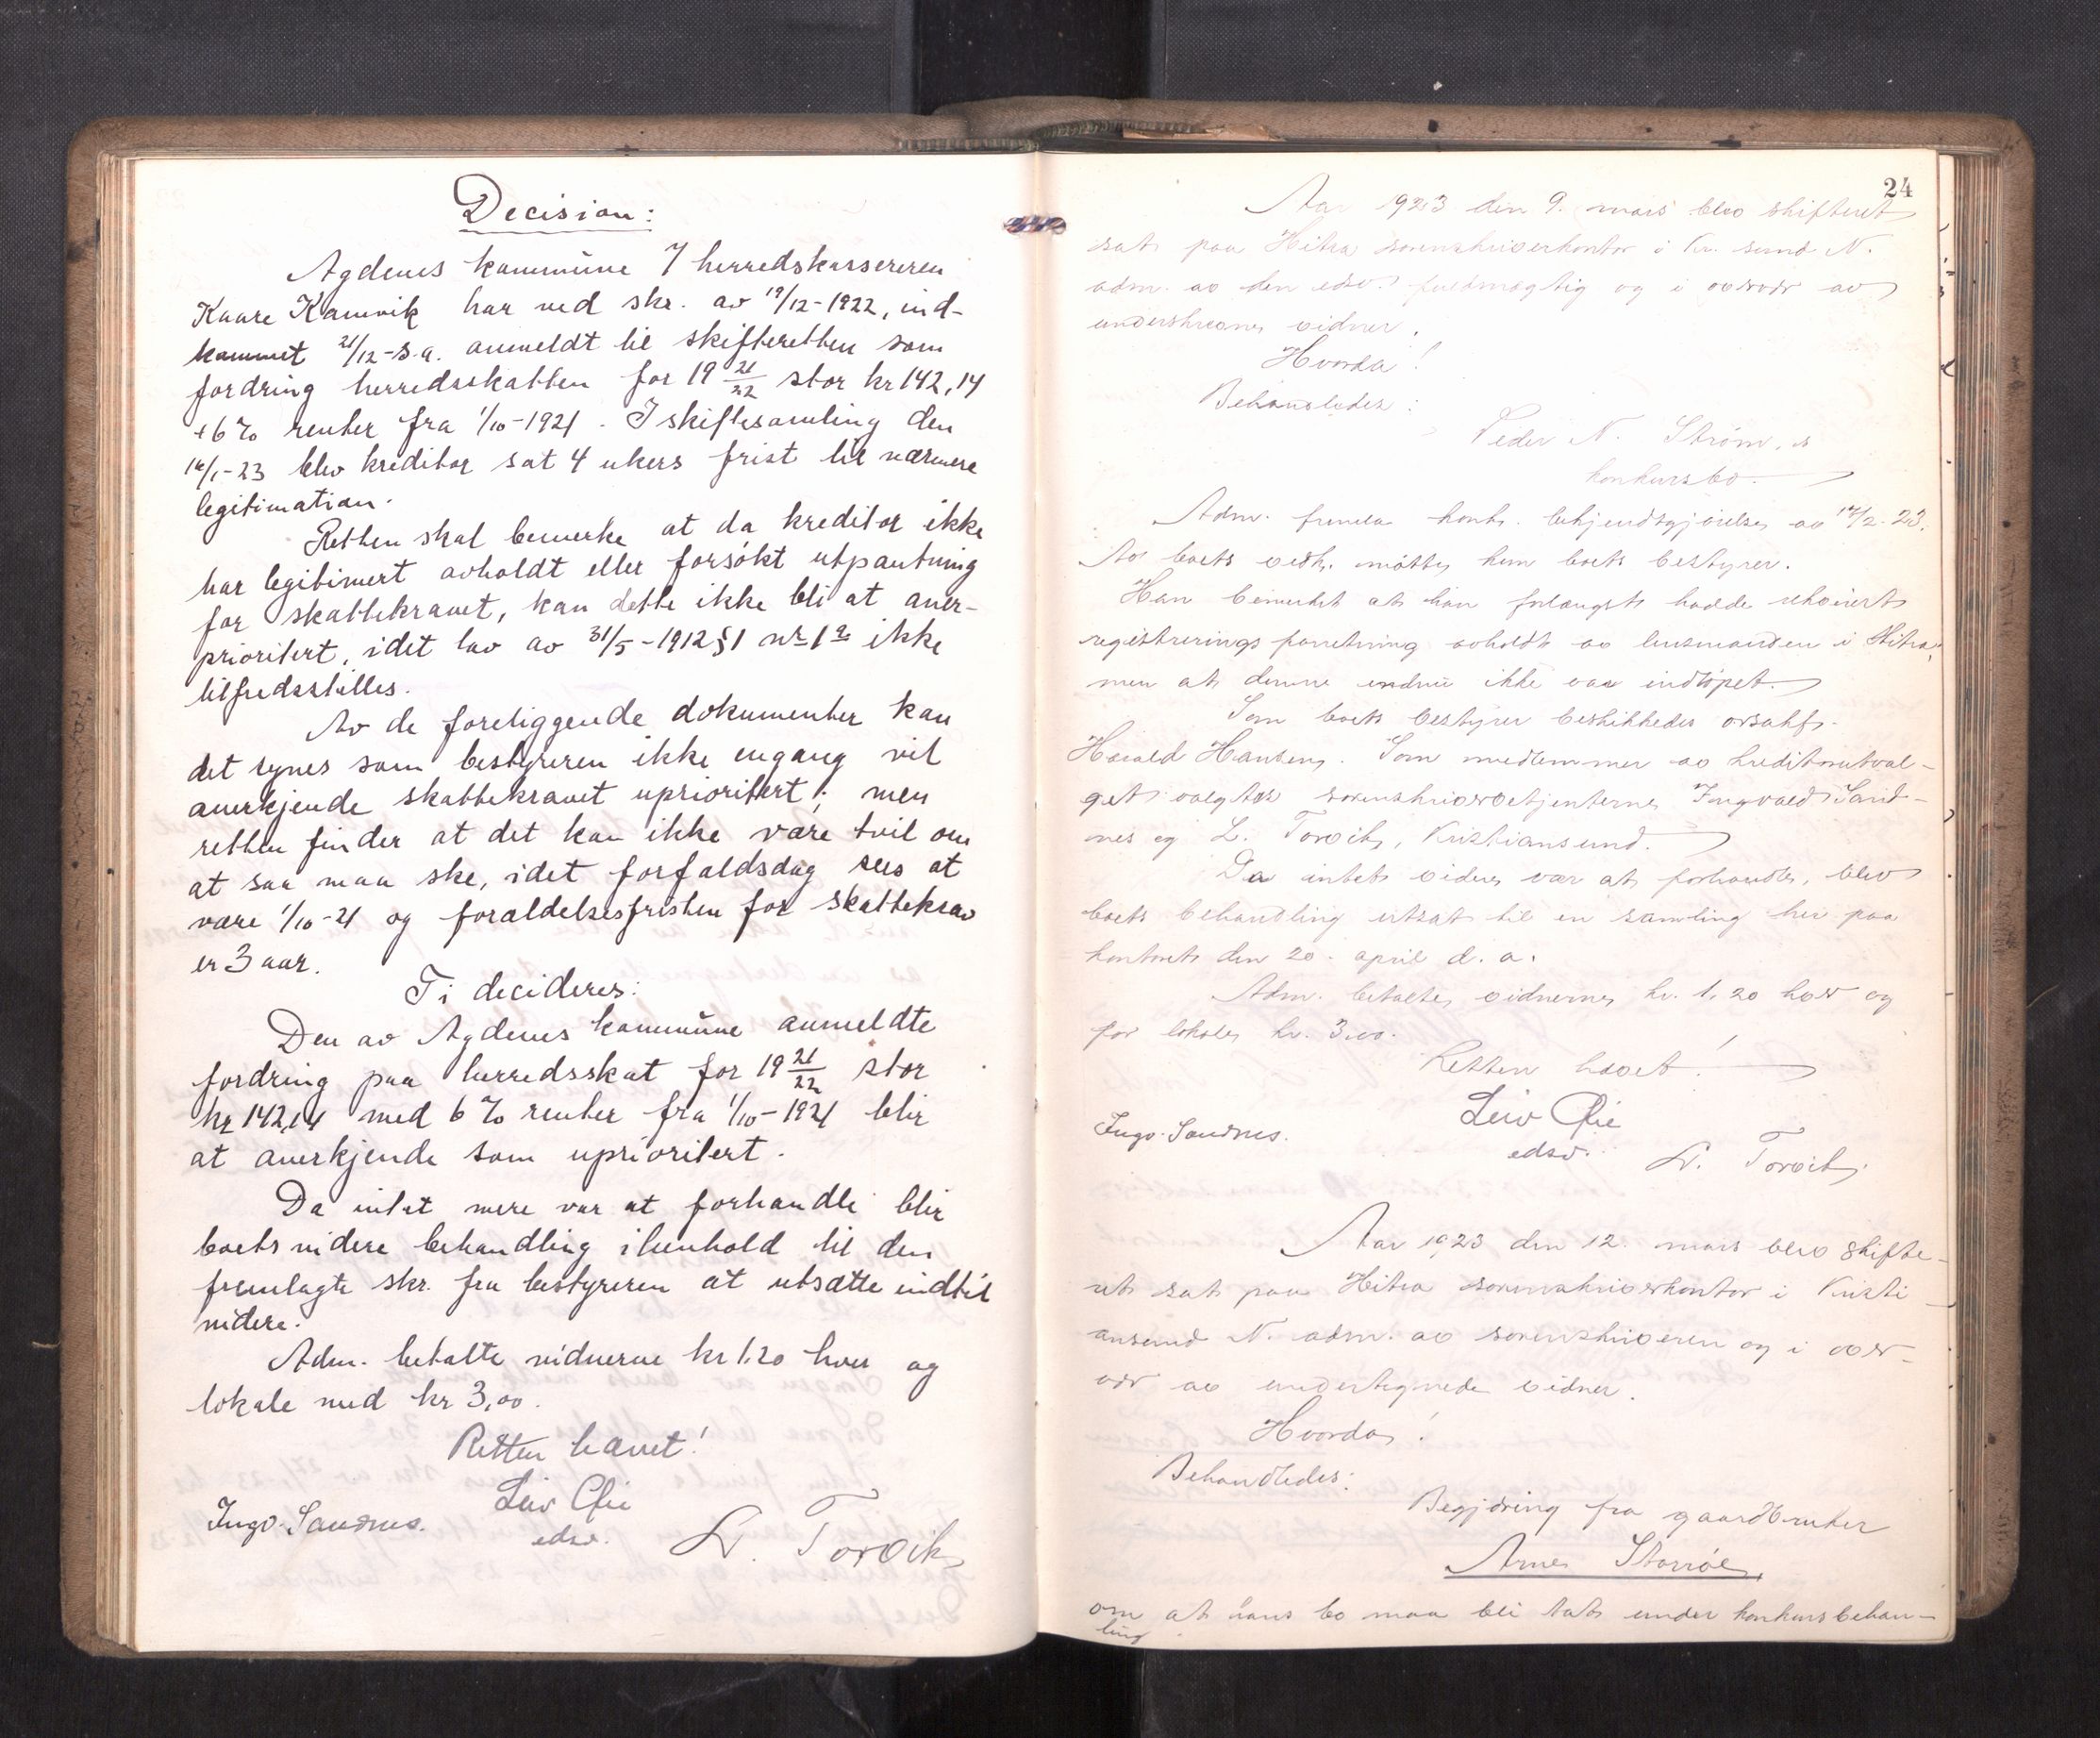 Decision:
Agdenes kommune ⁊ herredskassereren
Kaare Kamvik har ved skr. av 19/12-1922, ind-
kommet 21/12-s.a. anmeldt til skifteretten som
fordring herredsskatten for 19 21/22 stor kr 142,14
+ 6 % renter fra 1/10-1921. I skiftesamling den
16/1-23 blev kreditor sat 4 ukers frist til nærmere
legitimation.
Retten skal bemerke at da kreditor ikke
har legitimert avholdt eller forsøkt utpantning
for skattekravet, kan dette ikke bli at aner-
prioritert, idet lov av 31/5-1912 § 1 nr 1 a ikke
tilfredsstilles.
Av de foreliggende dokumenter kan
det synes som bestyreren ikke engang vil
anerkjende skattekravet uprioritert; men
retten finder at det kan ikke være tvil om
at saa maa ske, idet forfaldsdag sees at
være 1/10-21 og foraldelsesfristen for skattekrav
er 3 aar.
Ti decideres:
Den av Agdenes kommune anmeldte
fordring paa herredsskat for 19 21/22 stor
kr 142,14 med 6 % renter fra 1/10-1921 blir
at anerkjende som uprioritert.
Da intet mere var at forhandle blir
boets videre behandling i henhold til den
fremlagte skr. fra bestyreren at utsætte indtil
videre.
Adm. betalte vidnerne kr 1.20 hver og
lokale med kr 3,00.
Retten hævet!
Leiv Øie
edsv.
Ingv. Sandnes.
L. Torvik
24
Aar 1923 den 9. mars blev skifteret
sat paa Hitra sorenskriverkontor i Kr. sund N.
adm. av den edsv. fuldmægtig og i overvær av
underskrevne vidner.
Hvorda!
Behandledes:
Peder N. Strøm's
konkursbo.
Adm. fremla konk. bekjendtgjørelse av 17/2-23.
Av boets vedk. møtte kun boets bestyrer.
Han bemerket at han forlængst hadde rekvirert
registreringsforretning avholdt av lensmanden i Hitra,
men at denne endnu ikke var indløpet.
Som boets bestyrer beskikkedes orsakf.
Harald Hansen. Som medlemmer av kreditorutval-
get valgtes sorenskriverbetjenterne Ingvald Sand-
nes og L. Torvik, Kristiansund.
Da intet videre var at forhandle, blev
boets behandling utsat til en samling her paa
kontoret den 20. april d. a.
Adm. betalte vidnerne kr. 1,20 hver og
for lokale kr. 3.00.
Retten hævet!
Leiv Øie
edsv.
Ingv. Sandnes.
L. Torvik
Aar 1923 den 12. mars blev skifte-
ret sat paa Hitra sorenskriverkontor i Kristi-
ansund N. adm. av sorenskriveren og i over-
vær av undertegnede vidner.
Hvorda!
Behandledes:
Begjæring fra gaardbruker
Arne Storrøe,
om at hans bo maa bli tat under konkursbehan-
ling